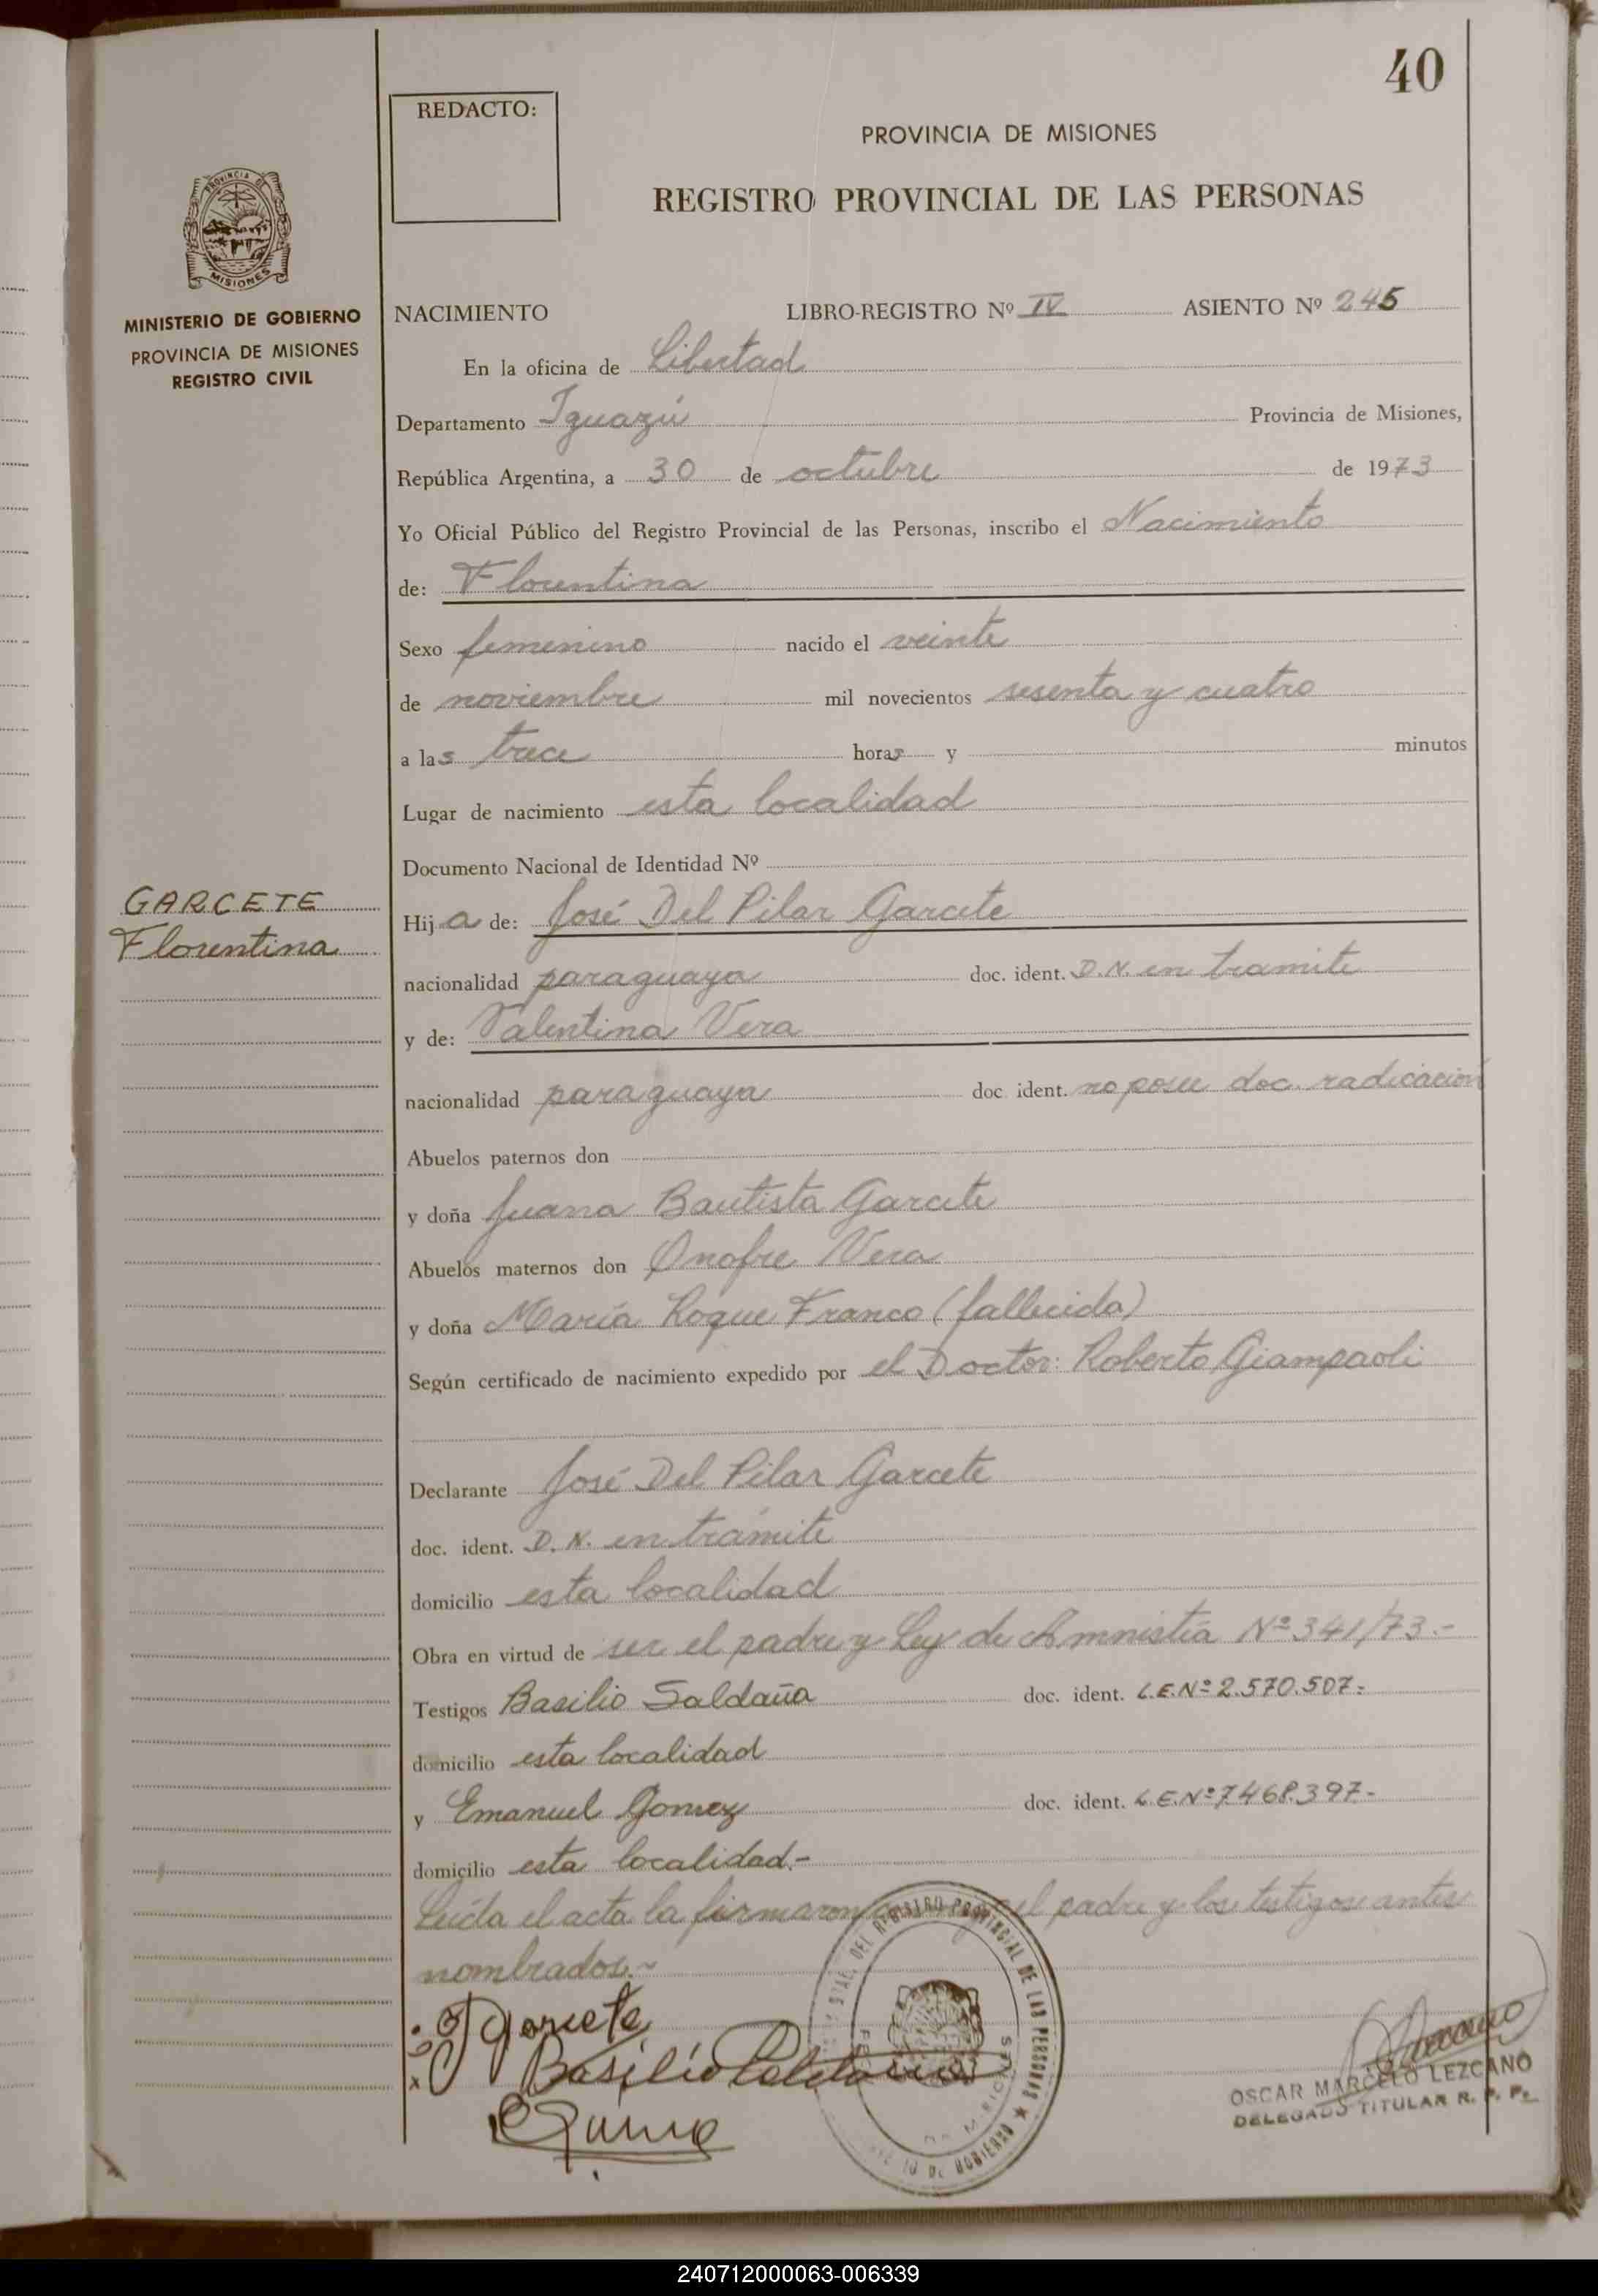 40
REDACTO:
PROVINCIA DE MISIONES
REGISTRO PROVINCIAL DE LAS PERSONAS
PROVINCIA DE
MISIONES
MINISTERIO DE GOBIERNO
PROVINCIA DE MISIONES
REGISTRO CIVIL
NACIMIENTO LIBRO-REGISTRO Nº IV ASIENTO Nº 245
En la oficina de Libertad
Departamento Iguazú Provincia de Misiones,
República Argentina, a 30 de octubre de 1973
Yo Oficial Público del Registro Provincial de las Personas, inscribo el Nacimiento
de: Florentina
Sexo femenino nacido el veinte
de noviembre mil novecientos sesenta y cuatro
a las trece horas y minutos
Lugar de nacimiento esta localidad
Documento Nacional de Identidad Nº
GARCETE
Florentina
Hija de: José Del Pilar Garcete
nacionalidad paraguaya doc. ident. D.N. en tramite
y de: Valentina Vera
nacionalidad paraguaya doc. ident. no posee doc. radicacion
Abuelos paternos don
y doña Juana Bautista Garcete
Abuelos maternos don Onofre Vera
y doña María Roque Franco (fallecida)
Según certificado de nacimiento expedido por el Doctor: Roberto Giampaoli
Declarante José Del Pilar Garcete
doc. ident. D.N. en trámite
domicilio esta localidad
Obra en virtud de ser el padre y Ley de Amnistía Nº 341/73.-
Testigos Basilio Saldaña doc. ident. L.E.Nº 2.570.507.-
domicilio esta localidad
y Emanuel Gomez doc. ident. L.E.Nº 7468.397-
domicilio esta localidad.-
Leída el acta la firmaron el padre y los testigos antes
nombrados.~
Garcete
Basilio Saldaña
DEL REGISTRO PROVINCIAL DE LAS PERSONAS ★ GOBIERNO
OSCAR MARCELO LEZCANO
DELEGADO TITULAR R. P. P.
240712000063-006339